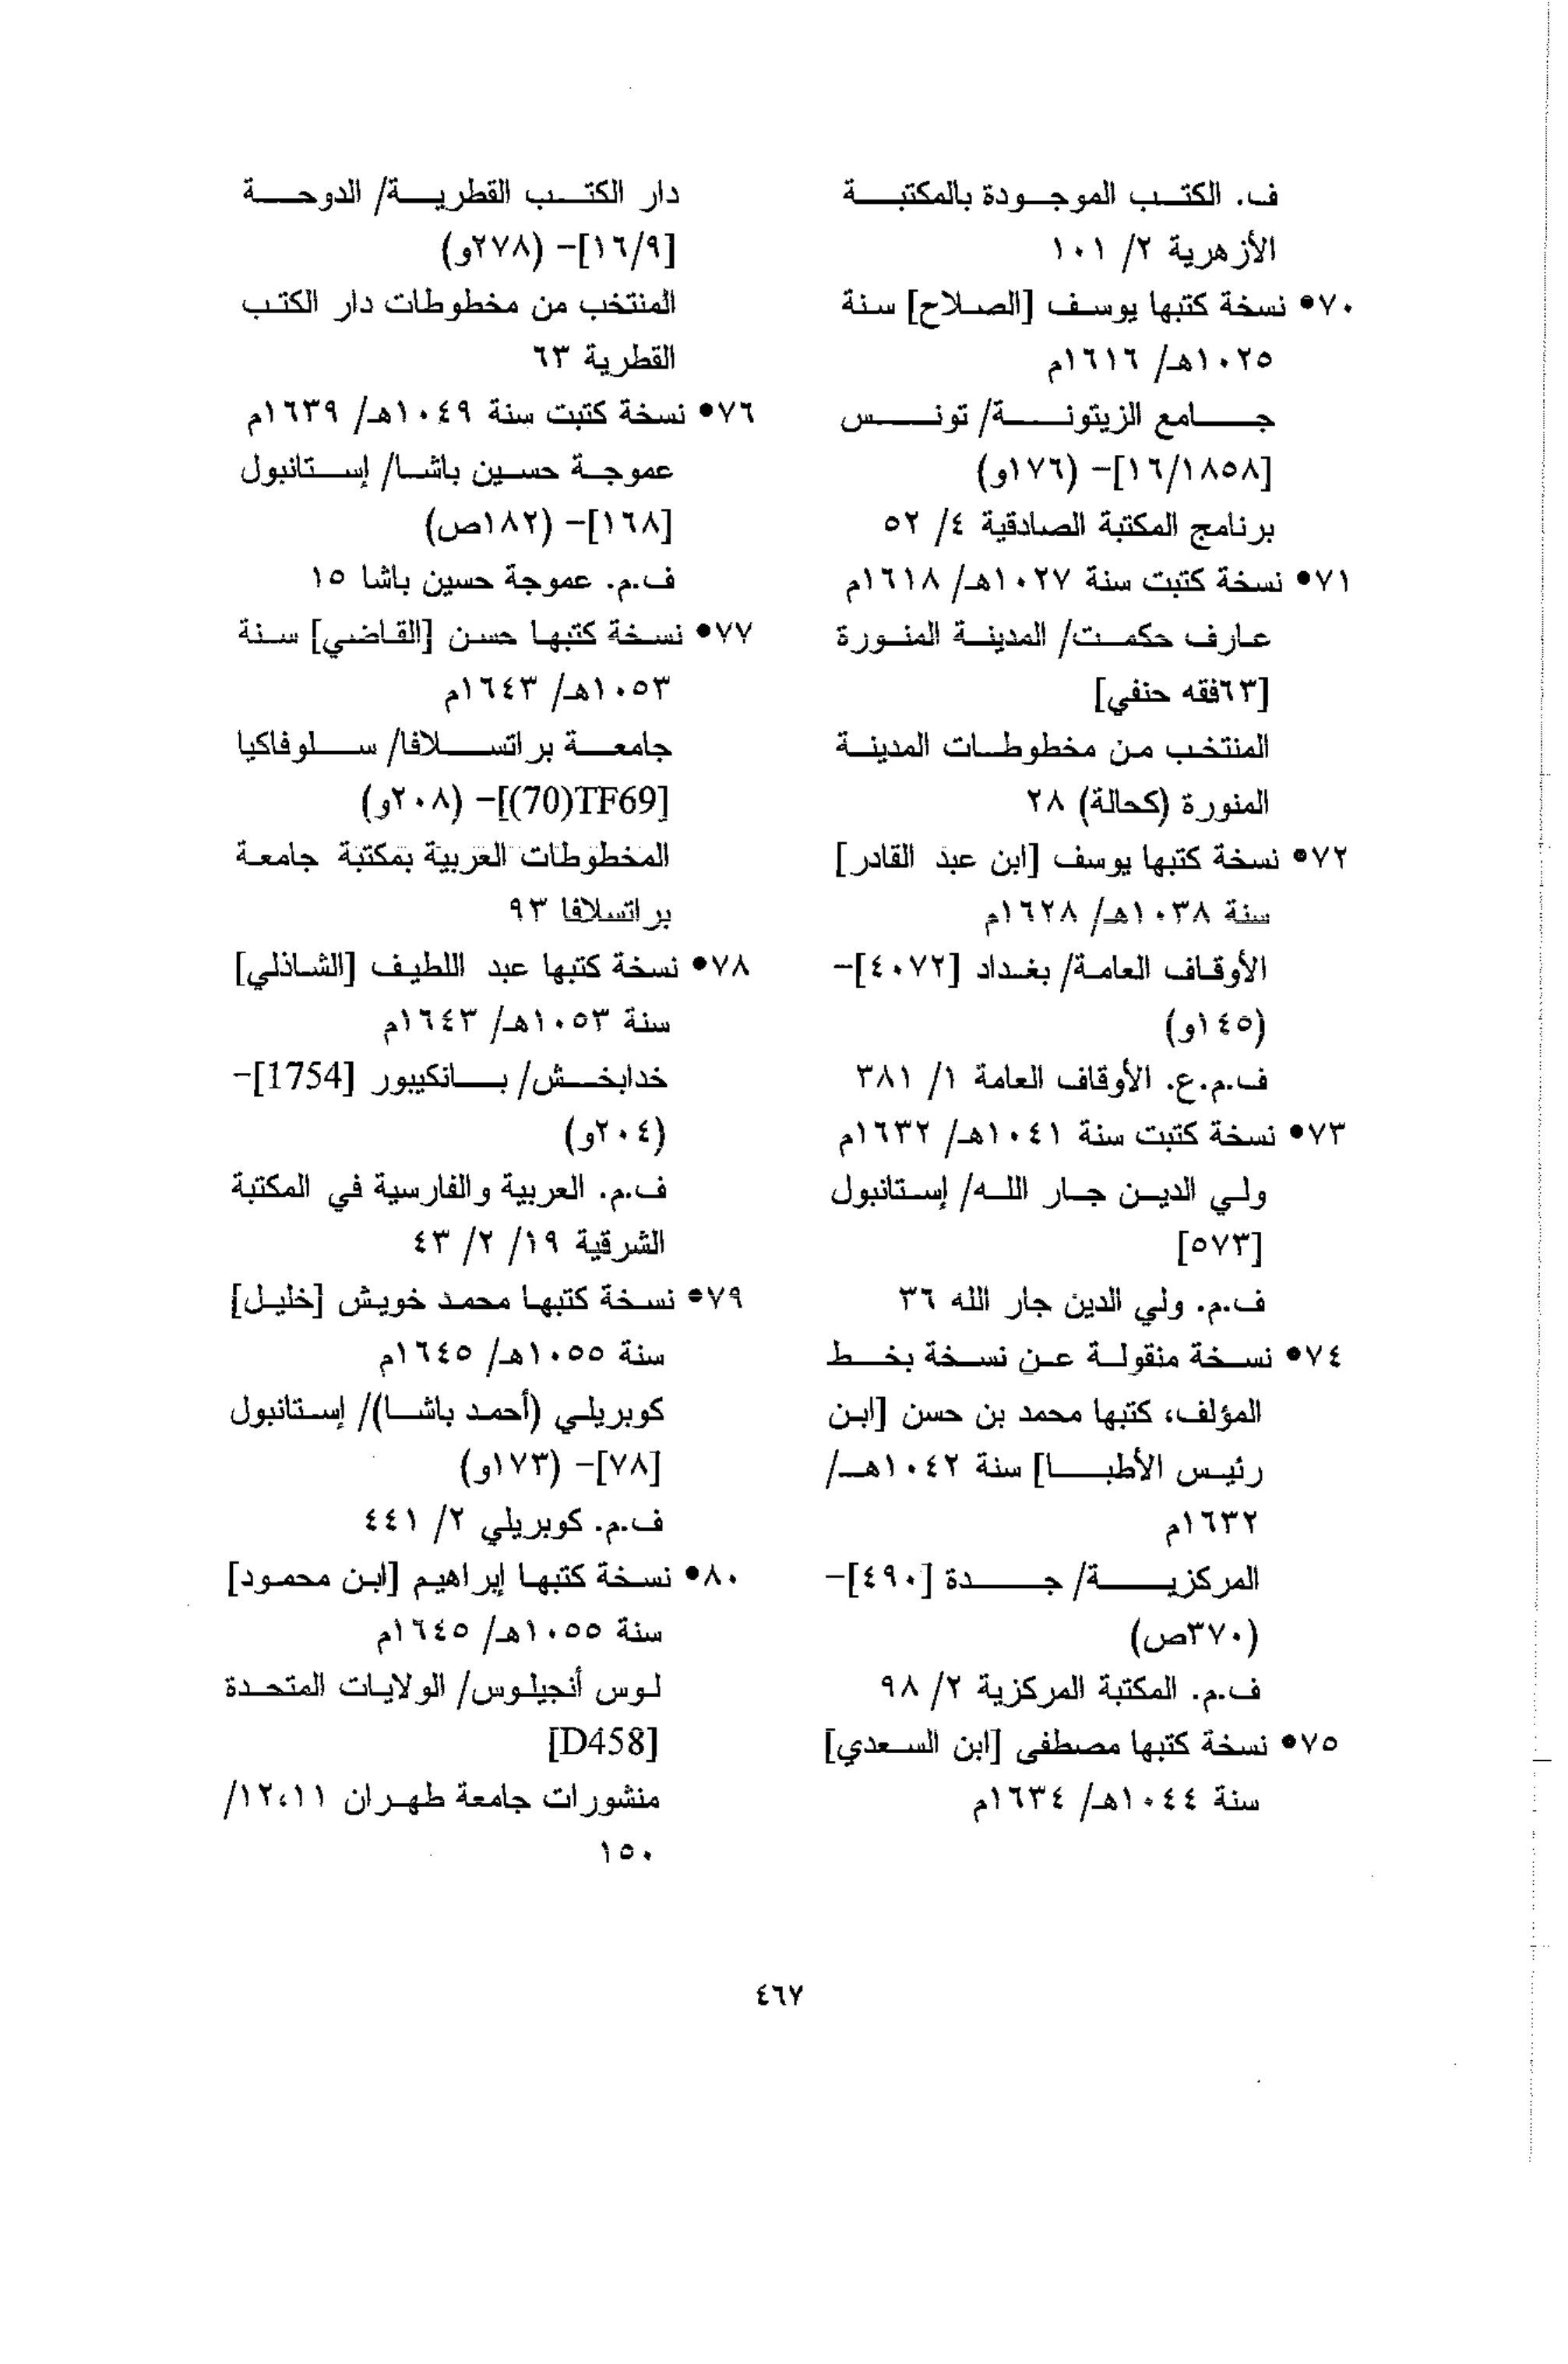 ف. الكتب الموجودة بالمكتبة
الأزهرية ٢/ ١٠١
٧٠• نسخة كتبها يوسف [الصلاح] سنة
١٠٢٥هـ/ ١٦١٦م
جامع الزيتونة/ تونس
[١٦/١٨٥٨]- (١٧٦و)
برنامج المكتبة الصادقية ٤/ ٥٢
٧١• نسخة كتبت سنة ١٠٢٧هـ/ ١٦١٨م
عارف حكمت/ المدينة المنورة
[٦٣فقه حنفي]
المنتخب من مخطوطات المدينة
المنورة (كحالة) ٢٨
٧٢• نسخة كتبها يوسف [ابن عبد القادر]
سنة ١٠٣٨هـ/ ١٦٢٨م
الأوقاف العامة/ بغداد [٤٠٧٢]-
(١٤٥و)
ف.م.ع. الأوقاف العامة ١/ ٣٨١
٧٣• نسخة كتبت سنة ١٠٤١هـ/ ١٦٣٢م
ولي الدين جار الله/ إستانبول
[٥٧٣]
ف.م. ولي الدين جار الله ٣٦
٧٤• نسخة منقولة عن نسخة بخط
المؤلف، كتبها محمد بن حسن [ابن
رئيس الأطبا] سنة ١٠٤٢هـ/
١٦٣٢م
المركزية/ جدة [٤٩٠]-
(٣٧٠ص)
ف.م. المكتبة المركزية ٢/ ٩٨
٧٥• نسخة كتبها مصطفى [ابن السعدي]
سنة ١٠٤٤هـ/ ١٦٣٤م
دار الكتب القطرية/ الدوحة
[١٦/٩]- (٢٧٨و)
المنتخب من مخطوطات دار الكتب
القطرية ٦٣
٧٦• نسخة كتبت سنة ١٠٤٩هـ/ ١٦٣٩م
عموجة حسين باشا/ إستانبول
[١٦٨]- (١٨٢ص)
ف.م. عموجة حسين باشا ١٥
٧٧• نسخة كتبها حسن [القاضي] سنة
١٠٥٣هـ/ ١٦٤٣م
جامعة براتسلافا/ سلوفاكيا
[TF69(70)]- (٢٠٨و)
المخطوطات العربية بمكتبة جامعة
براتسلافا ٩٣
٧٨• نسخة كتبها عبد اللطيف [الشاذلي]
سنة ١٠٥٣هـ/ ١٦٤٣م
خدابخش/ بانكيبور [1754]-
(٢٠٤و)
ف.م. العربية والفارسية في المكتبة
الشرقية ١٩/ ٢/ ٤٣
٧٩• نسخة كتبها محمد خويش [خليل]
سنة ١٠٥٥هـ/ ١٦٤٥م
كوبريلي (أحمد باشا)/ إستانبول
[٧٨]- (١٧٣و)
ف.م. كوبريلي ٢/ ٤٤١
٨٠• نسخة كتبها إبراهيم [ابن محمود]
سنة ١٠٥٥هـ/ ١٦٤٥م
لوس أنجيلوس/ الولايات المتحدة
[D458]
منشورات جامعة طهران ١٢،١١/
١٥٠
٤٦٧